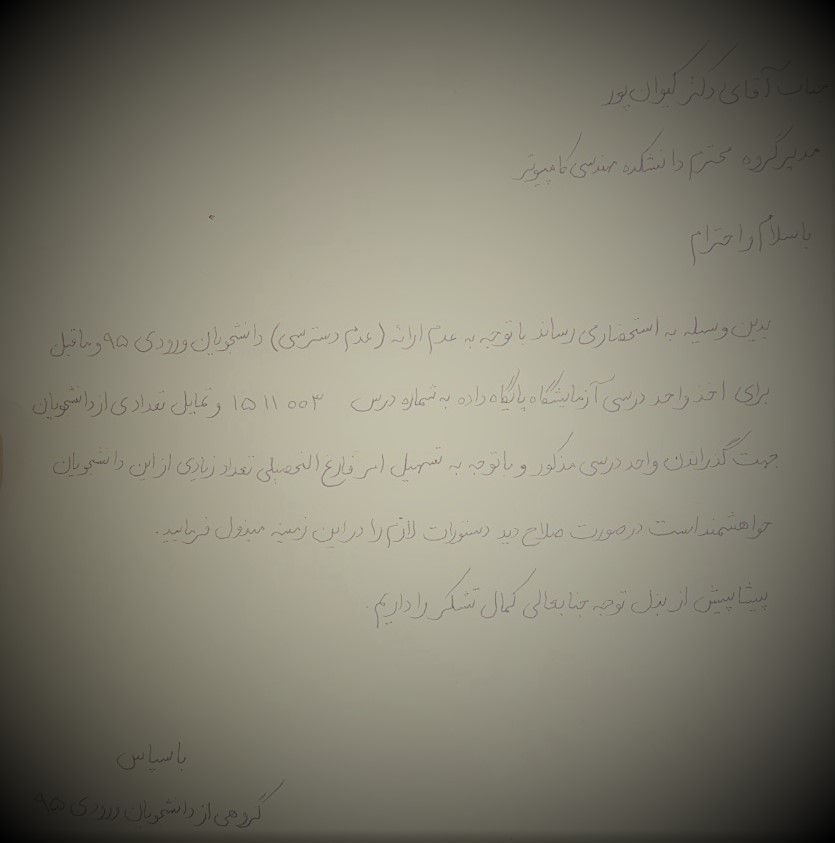 جناب آقای دکتر کیوان پور
مدیر گروه محترم دانشکده مهندسی کامپیوتر
با سلام و احترام
بدین وسیله به استحضار می رساند با توجه به عدم ارائه (عدم دسترسی) دانشجویان ورودی ۹۵ و ماقبل
برای اخذ واحد درسی آزمایشگاه پایگاه داده به شماره درس ۱۵۱۱۰۰۳ و تمایل تعدادی از دانشجویان
جهت گذراندن واحد درسی مذکور و با توجه به تسهیل امر فارغ التحصیلی تعداد زیادی از این دانشجویان
خواهشمند است در صورت صلاح دید دستورات لازم را در این زمینه مبذول فرمایید.
پیشاپیش از بذل توجه جنابعالی کمال تشکر را داریم.
با سپاس
گروهی از دانشجویان ورودی ۹۵